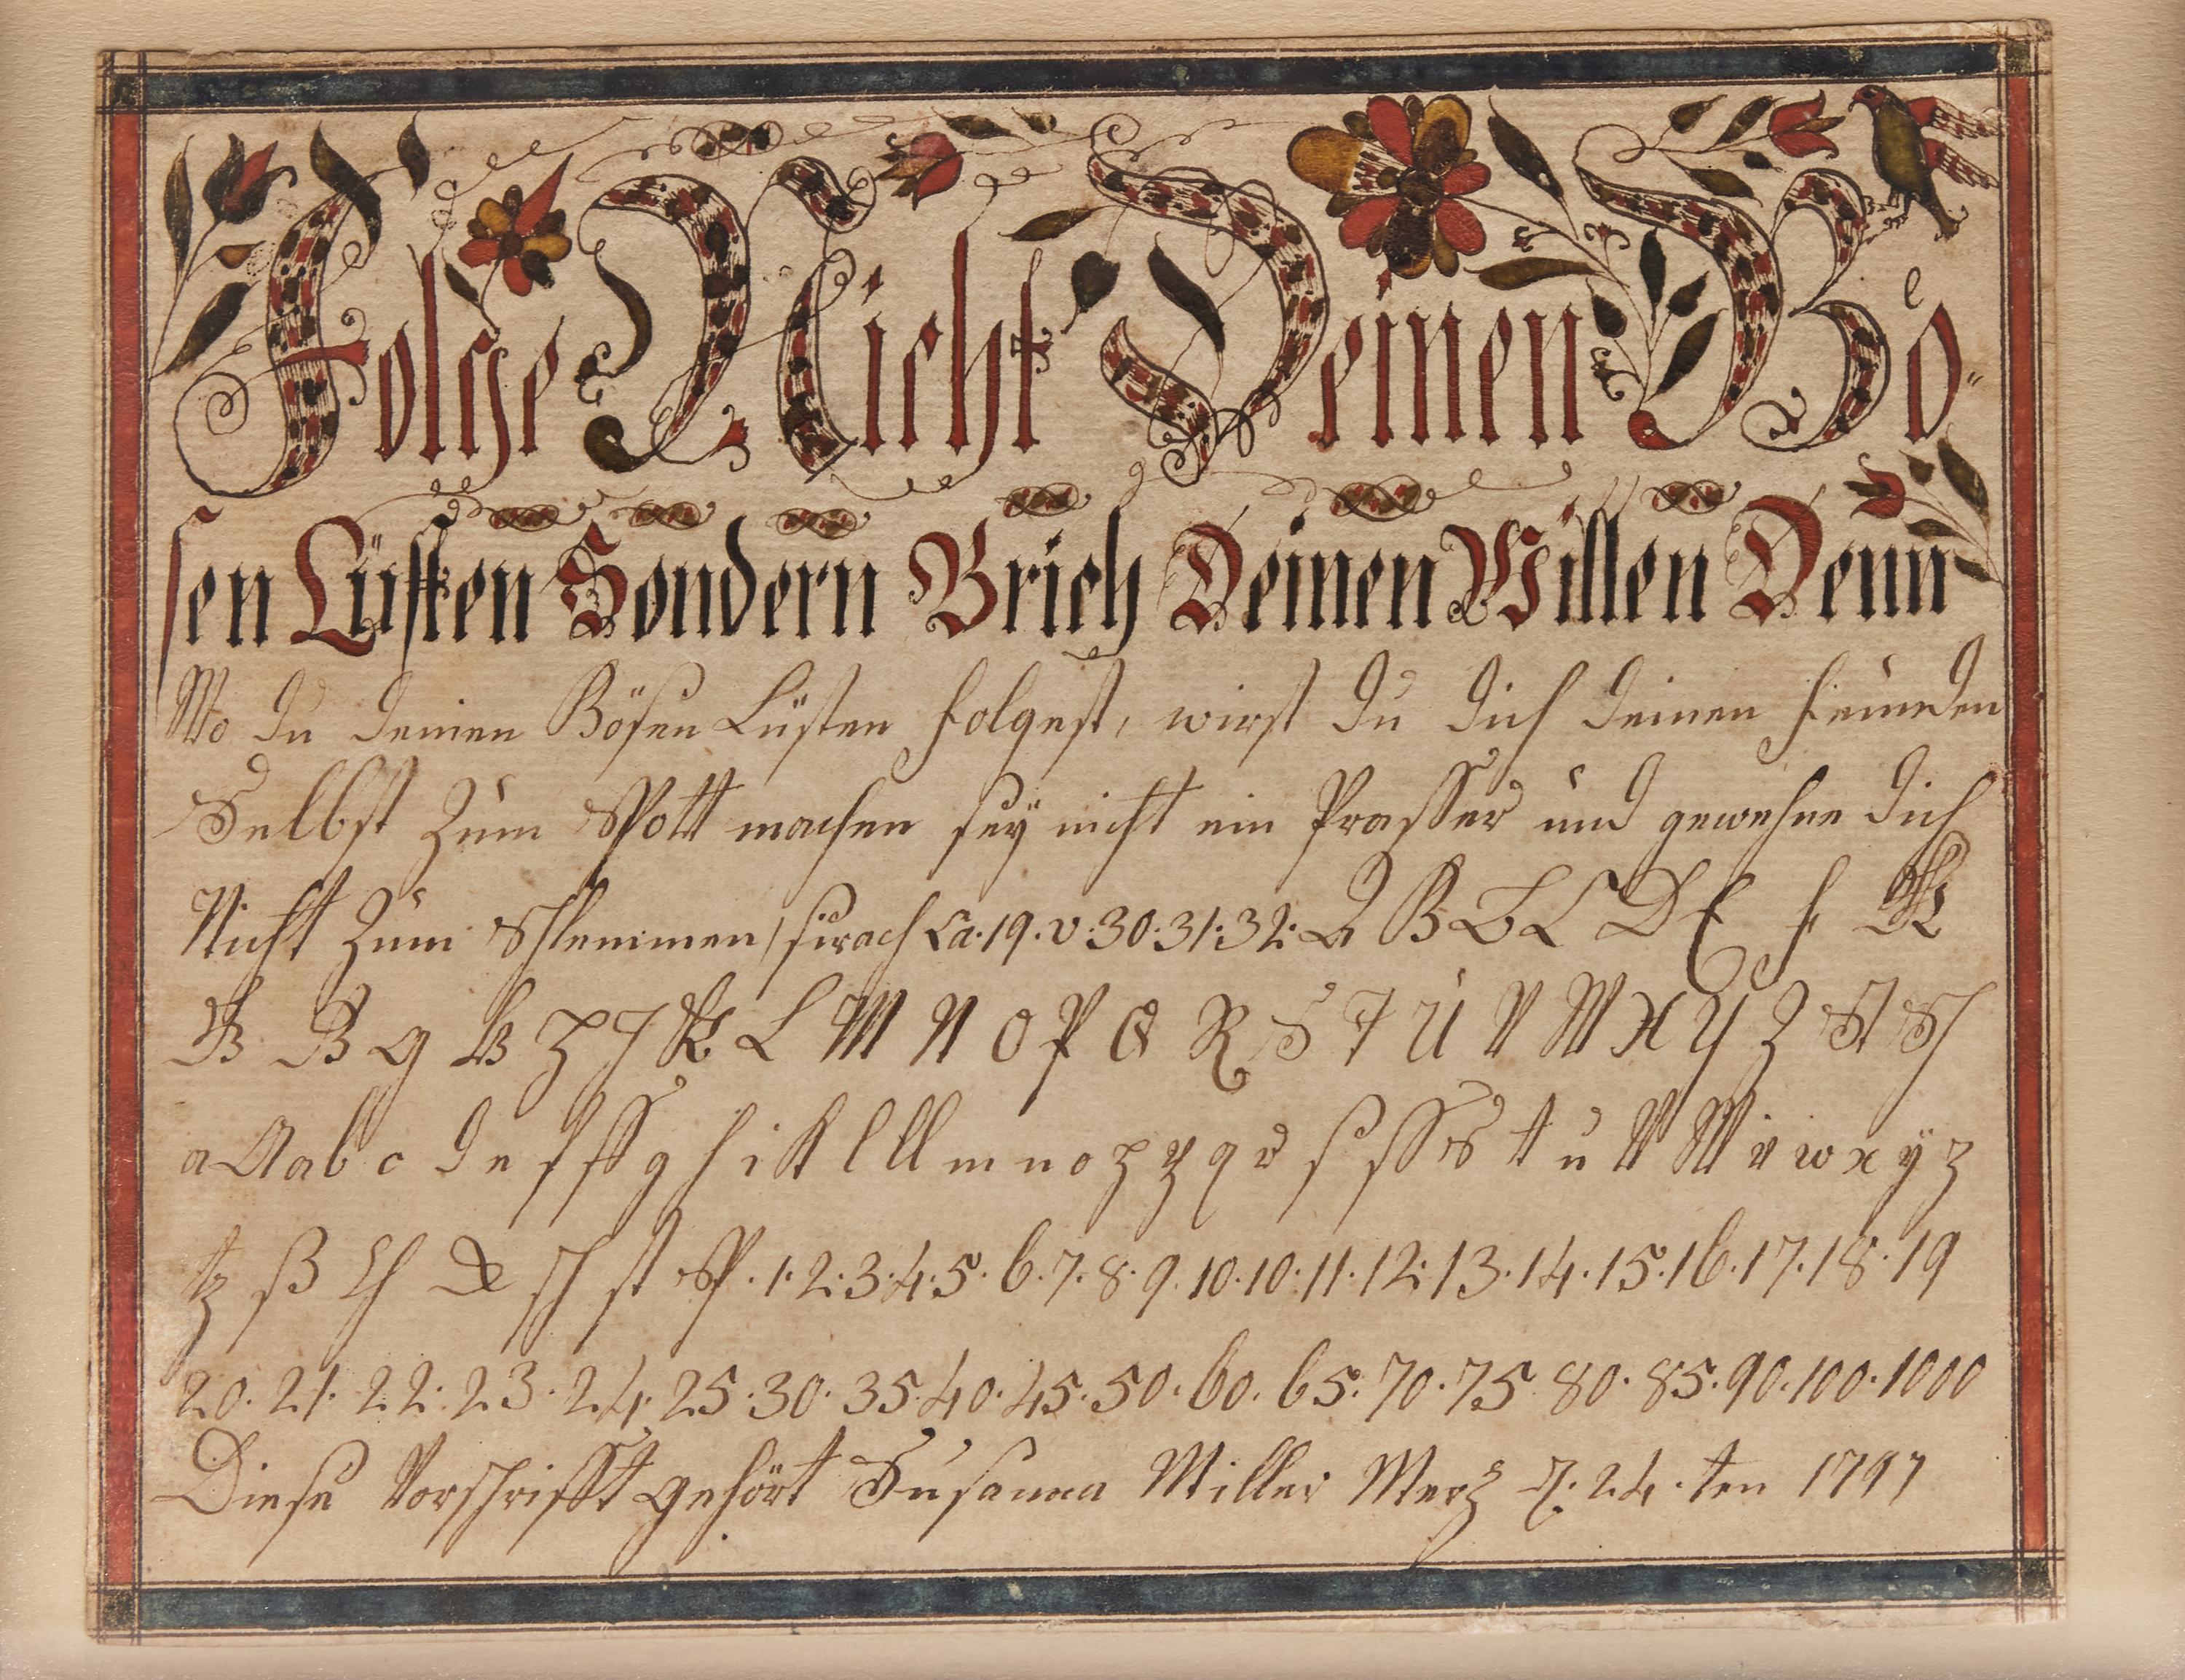 Folge Nicht Deinen Bö=
sen Lüsten Sondern Brich Deinen Willen Denn
Wo du deinen Bösen Lüsten folgest, wirst du dich deinen feinden
Selbst zum Spott machen sey nicht ein Prasser und gewehne dich
Nicht zum Schlemmen, sirach Ca. 19. v: 30. 31: 32: A B C D E F
G H I K L M N O P Q R S T U V W X Y Z St Sch
a a a b c d e f ff g h i k l ll m n o p p q r s ss s t u v w x ÿ z
tz ß ch sch st Sp. 1. 2: 3. 4. 5. 6. 7. 8. 9. 10. 10. 11. 12: 13. 14. 15. 16. 17. 18. 19
20. 21. 22. 23. 24. 25. 30. 35. 40. 45. 50. 60. 65. 70. 75 80. 85. 90. 100. 1000
Diese Vorschrifft gehört Susanna Miller Merz d: 24. ten 1797